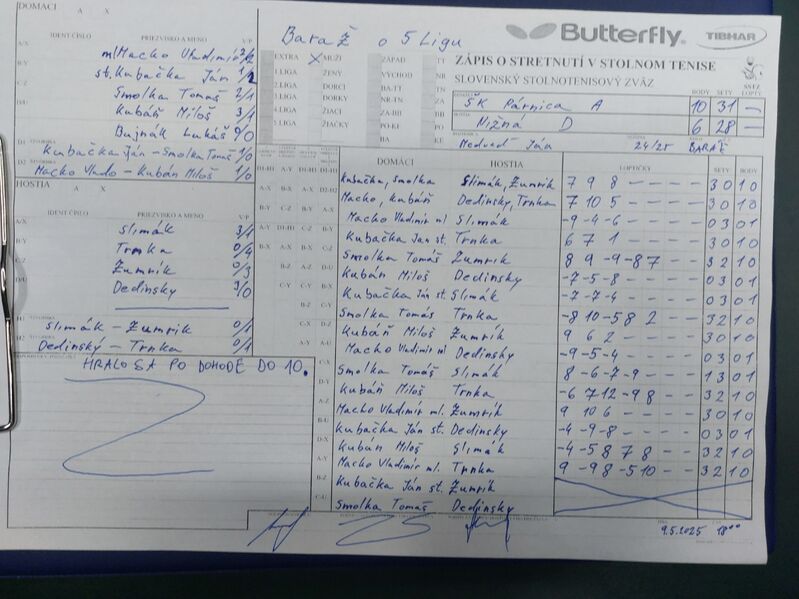 DOMÁCI A X
IDENT ČÍSLO PRIEZVISKO A MENO V/P
ml Macko Vladimír 2/2
st. Kubačka Ján 1/2
Smolka Tomáš 2/1
Kubáň Miloš 3/1
Bujnák Lukáš 0/0
Kubačka Ján - Smolka Tomáš 1/0
Macko Vlado - Kubáň Miloš 1/0
HOSTIA A X
IDENT ČÍSLO PRIEZVISKO A MENO V/P
Slimák 3/1
Trnka 0/4
Žumrík 0/3
Dedinský 3/0
Slimák - Žumrík 0/1
Dedinský - Trnka 0/1
HRALO SA PO DOHODE DO 10.
Baráž o 5 Ligu
EXTRA X MUŽI ZÁPAD TT
1.LIGA ŽENY VÝCHOD NR
2.LIGA DORCI BA-TT
3.LIGA DORKY NR-TN
4.LIGA ŽIACI ZA-BB
5.LIGA ŽIAČKY PO-KE
Butterfly TIBHAR
ZÁPIS O STRETNUTÍ V STOLNOM TENISE
SLOVENSKÝ STOLNOTENISOVÝ ZVÄZ
BODY SETY LOPTY
ŠK Párnica A 10 31 -
Nižná D 6 28 -
Medveď Ján 24/25 BARÁŽ
DOMÁCI HOSTIA LOPTIČKY SETY BODY
Kubačka, Smolka Slimák, Žumrík 7 9 8 - - - - 3 0 1 0
Macko, Kubáň Dedinsky, Trnka 7 10 5 - - - - 3 0 1 0
Macko Vladimír ml Slimák -9 -4 -6 - - - - 0 3 0 1
Kubačka Ján st. Trnka 6 7 1 - - - - 3 0 1 0
Smolka Tomáš Žumrík 8 9 -9 -8 7 - - 3 2 1 0
Kubáň Miloš Dedinsky -7 -5 -8 - - - - 0 3 0 1
Kubačka Ján st. Slimák -7 -7 -4 - - - - 0 3 0 1
Smolka Tomáš Trnka -8 10 -5 8 2 - - 3 2 1 0
Kubáň Miloš Žumrík 9 6 2 - - - - 3 0 1 0
Macko Vladimír ml Dedinsky -9 -5 -4 - - - - 0 3 0 1
Smolka Tomáš Slimák 8 -6 -7 -9 - - - 1 3 0 1
Kubáň Miloš Trnka -6 7 12 -9 8 - - 3 2 1 0
Macko Vladimír ml. Žumrík 9 10 6 - - - - 3 0 1 0
Kubačka Ján st. Dedinsky -4 -9 -8 - - - - 0 3 0 1
Kubáň Miloš Slimák -4 -5 8 7 8 - - 3 2 1 0
Macko Vladimír ml. Trnka 9 -9 8 -5 10 - - 3 2 1 0
Kubačka Ján st. Žumrík
Smolka Tomáš Dedinsky
9.5.2025 18⁰⁰